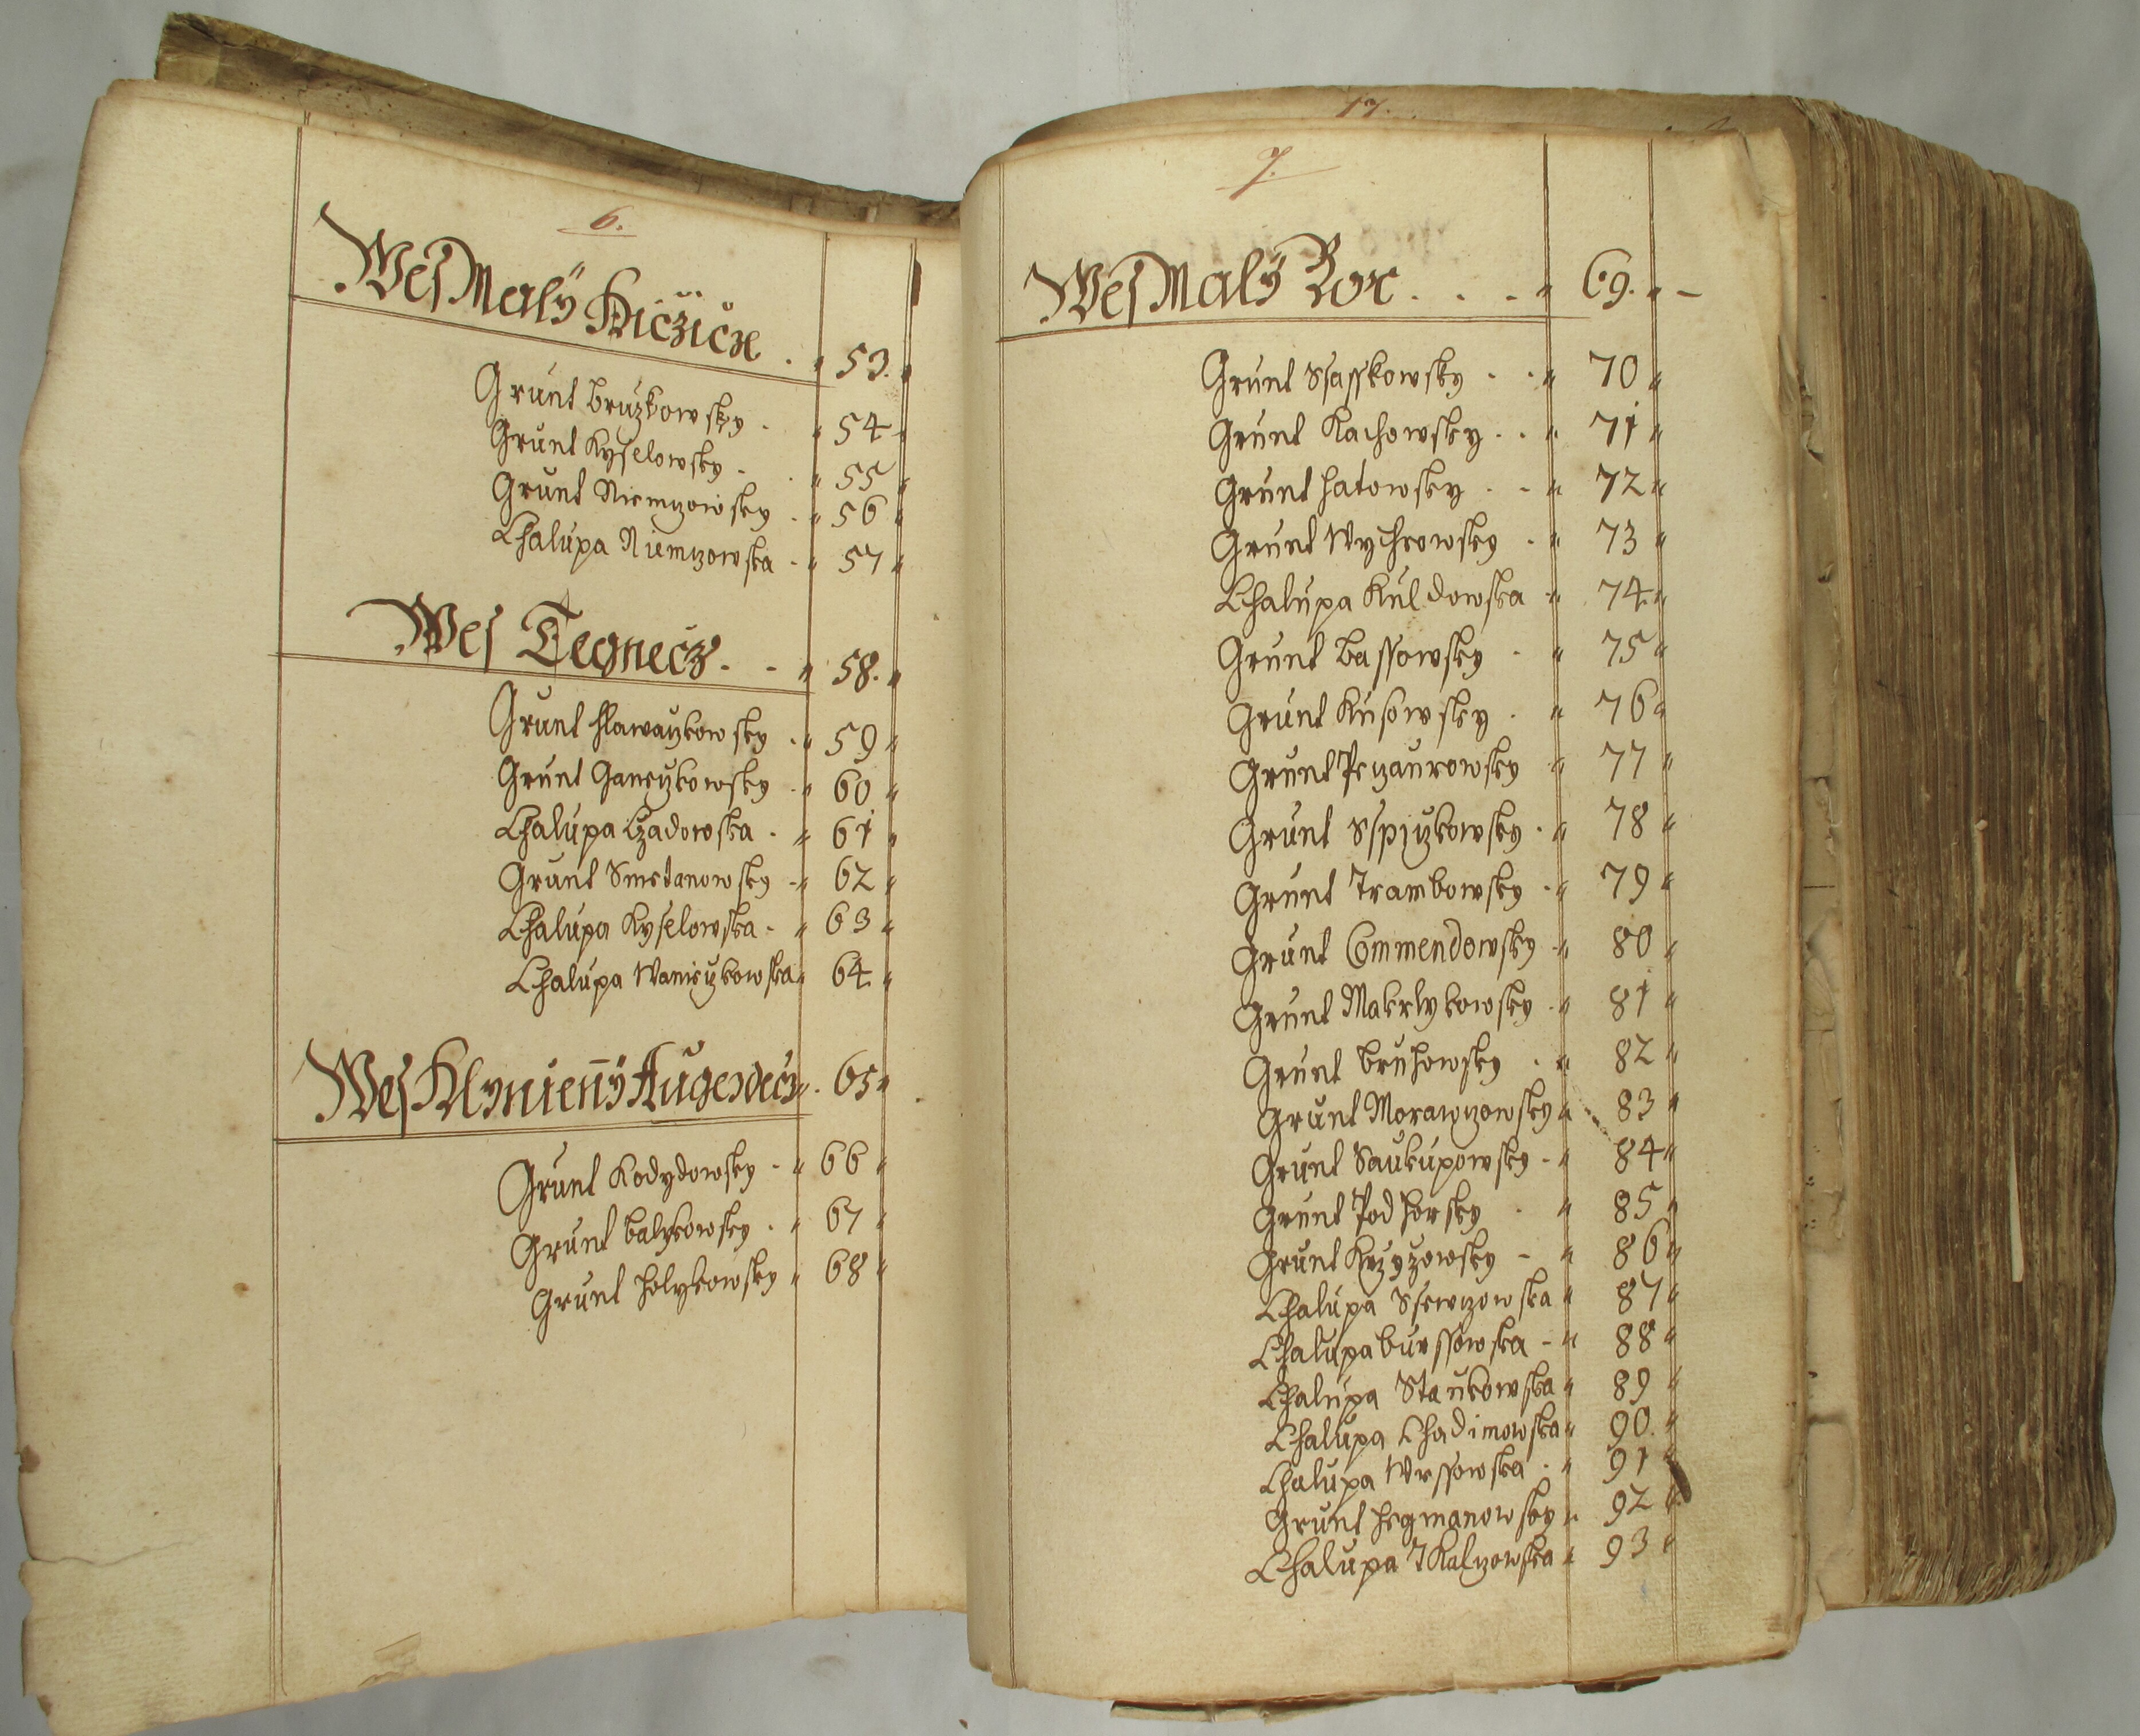 6.
Wes Malÿ Kiczicze . " 53. "
Grunt Bruzkowsky . " 54 "
Grunt Kyselowsky . " 55 "
Grunt Niemczowsky . " 56 "
Chalupa Niemczowska . " 57 "
Wes Tegnecz . - " 58. "
Grunt Hlawaczkowsky . " 59 "
Grunt Ganeczkowsky . " 60 "
Chalupa Czadowska . " 61 "
Grunt Smetanowsky - " 62 "
Chalupa Kyselowska - " 63 "
Chalupa Waniczkowska " 64 "
Wes Klynienÿ Augezdecz . 65 "
Grunt Kodydowsky - " 66 "
Grunt Balykowsky . " 67 "
Grunt Holykowsky " 68 "
17.
7.
Wes Malÿ Bor . . - " 69. " -
Grunt Ssasskowsky . . " 70 "
Grunt Kachowsky . . " 71 "
Grunt Hatowsky . - " 72 "
Grunt Wychrowsky . " 73 "
Chalupa Kuldowska " 74 "
Grunt Bassowsky . " 75 "
Grunt Kusowsky . " 76 "
Grunt Peczaurowsky " 77 "
Grunt Sspiczkowsky . " 78 "
Grunt Trambowsky . " 79 "
Grunt Commendowsky " 80 "
Grunt Makrlykowsky . " 81 "
Grunt Bruhowsky . " 82 "
Grunt Morawczowsky " 83 "
Grunt Saukupowsky - " 84 "
Grunt Podhorsky . " 85 "
Grunt Krzyzowsky - " 86 "
Chalupa Ssewczowska " 87 "
Chalupa Burssowska - " 88 "
Chalupa Staukowska " 89 "
Chalupa Chadimowska " 90. "
Chalupa Wrssowska . " 91 "
Grunt Hegmanowsky " 92 "
Chalupa Tkalczowska " 93 "